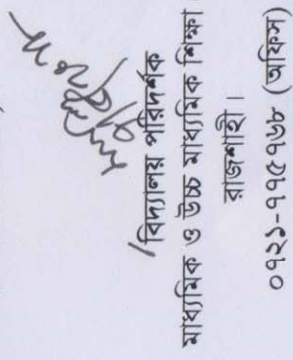 বিদ্যালয় পরিদর্শক
মাধ্যমিক ও উচ্চ মাধ্যমিক শিক্ষা
রাজশাহী।
০৭২১-৭৭৫৭৬৮ (অফিস)